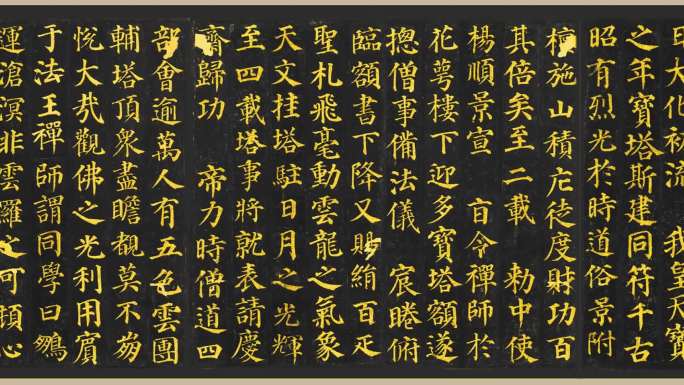 日大化初流 我皇天寶
之年寶塔斯建同符千古
昭有烈光於時道俗景附
檀施山積庀徒度財功百
其倍矣至二載 敕中使
楊順景宣 旨令禪師於
花萼樓下迎多寶塔額遂
摠僧事備法儀 宸睠俯
臨額書下降又賜絹百疋
聖札飛毫動雲龍之氣象
天文挂塔駐日月之光輝
至四載塔事將就表請慶
齋歸功 帝力時僧道四
部會逾萬人有五色雲團
輔塔頂衆盡瞻覩莫不崩
悅大哉觀佛之光利用賓
于法王禪師謂同學曰鵬
運滄溟非雲羅之可頓心